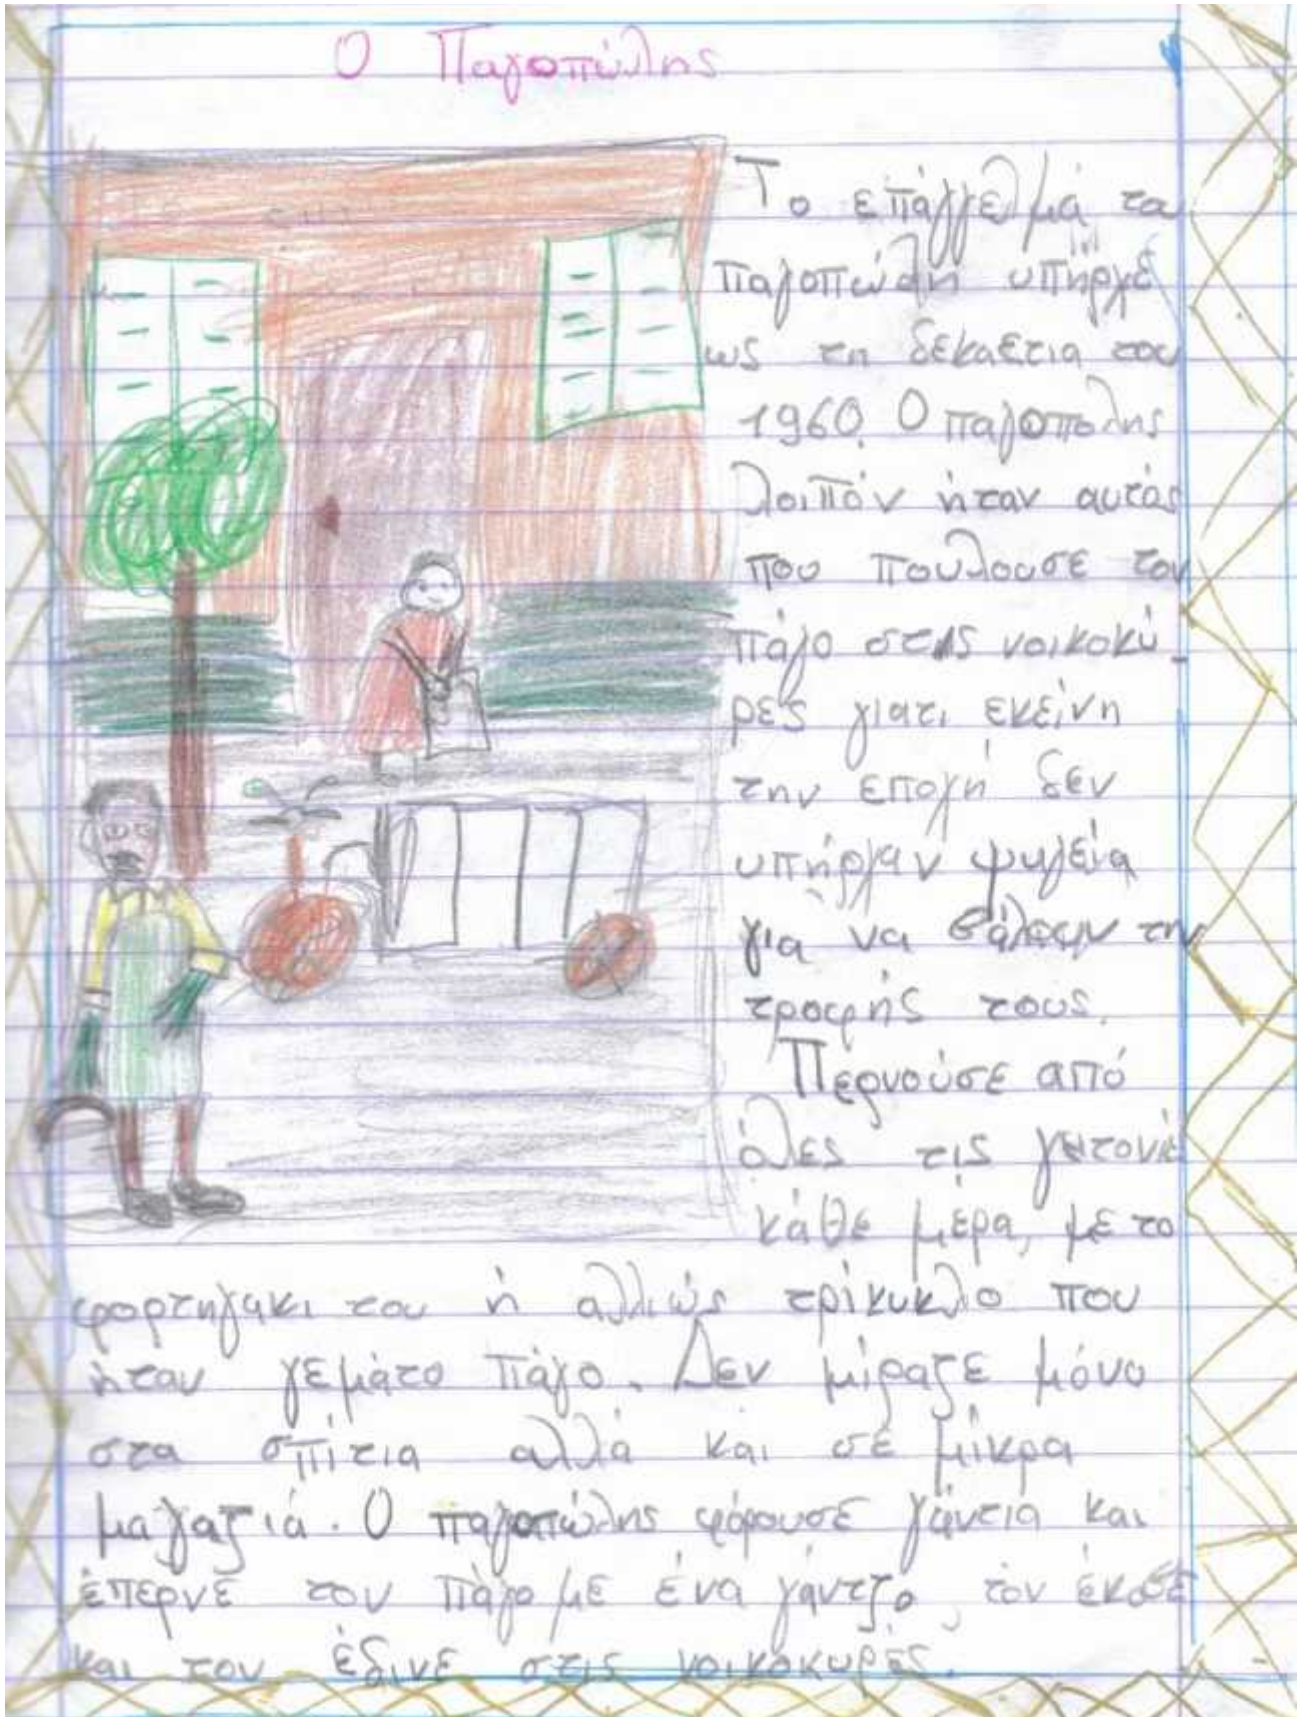 Ο Παγοπώλης
Το επάγγελμά του
παγοπώλη υπήρχε
ως τη δεκαετια του
1960. Ο παγοπολης
λοιπόν ήταν αυτός
που πουλουσε τον
πάγο στις νοικοκύ-
ρες γιατι εκείνη
την εποχή δεν
υπήρχαν ψυγεία
για να βάλουν τη
τροφής τους.
Περνούσε από
όλες τις γειτονιές
κάθε μέρα, με το
φορτηγακι του ή αλλιώς τρίκυκλο που
ήταν γεμάτο πάγο. Δεν μίραζε μόνο
στα σπίτια αλλά και σε μίκρα
μαγαζιά. Ο παγοπώλης φόρουσε γάντια και
έπερνε τον πάγο με ένα γάντζο, τον έκοβε
και τον έδινε στις νοικοκυρές.